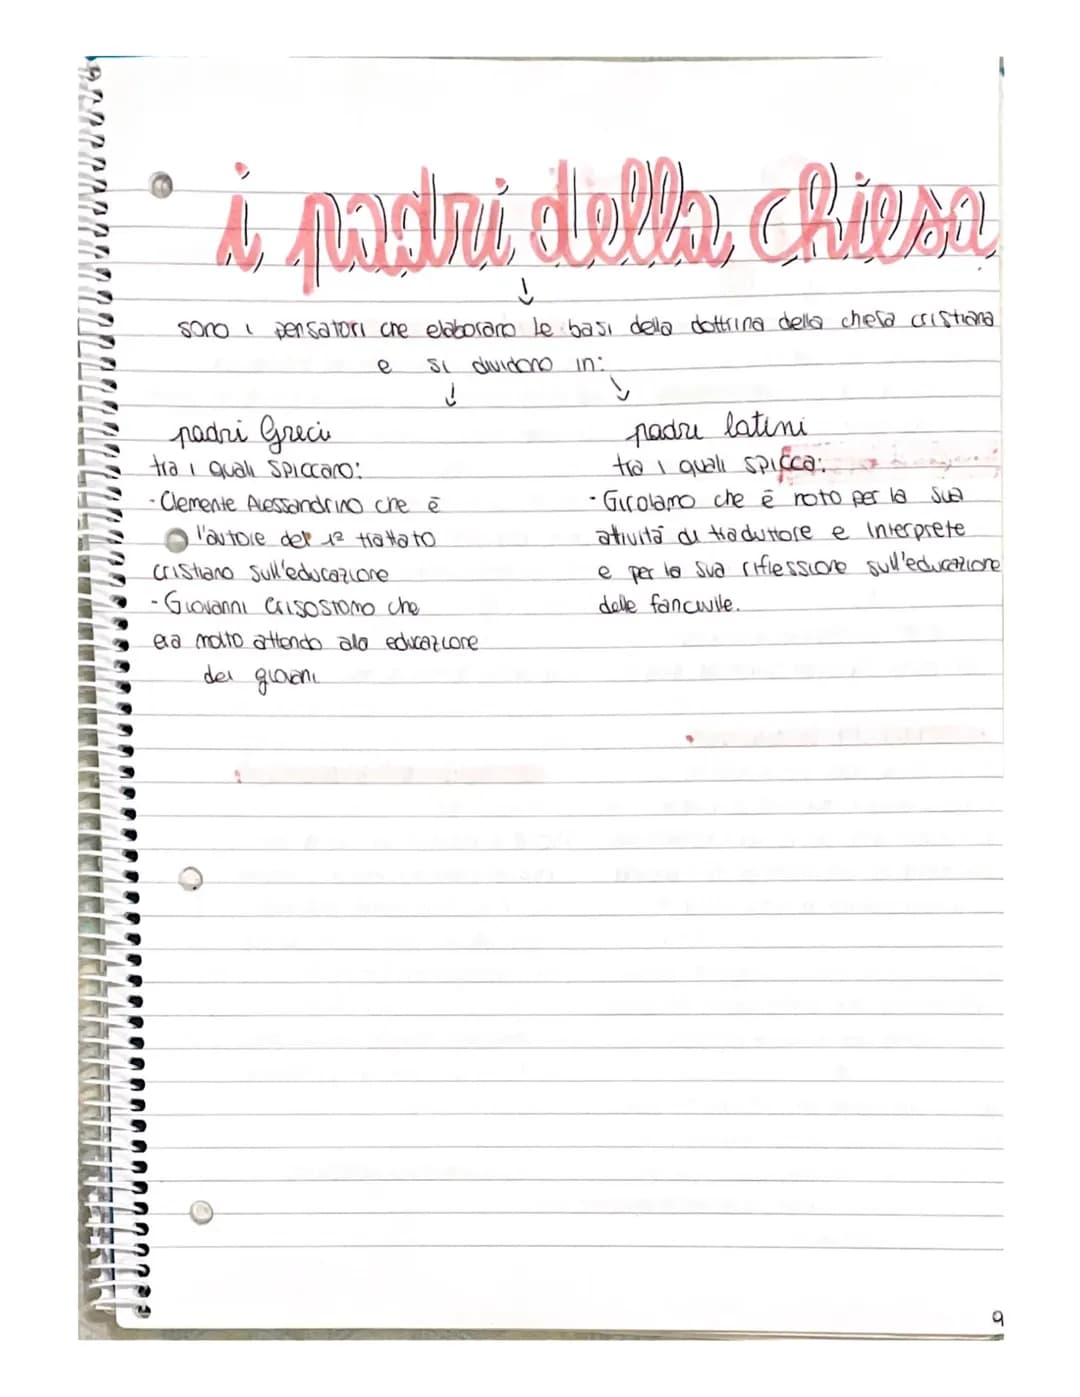 i padri della chiesa
sono i pensatori che elaborano le basi della dottrina della chesa cristiana
e si dividono in:
padri Greci
tra i quali spiccano:
- Clemente Alessandrino che è
l'autore del 1º trattato
cristiano sull'educazione
- Giovanni Crisostomo che
era molto attendo alla educazione
dei giovani
padri latini
tra i quali spicca:
- Girolamo che è noto per la sua
attività di traduttore e interprete
e per la sua riflessione sull'educazione
delle fanciulle.
9